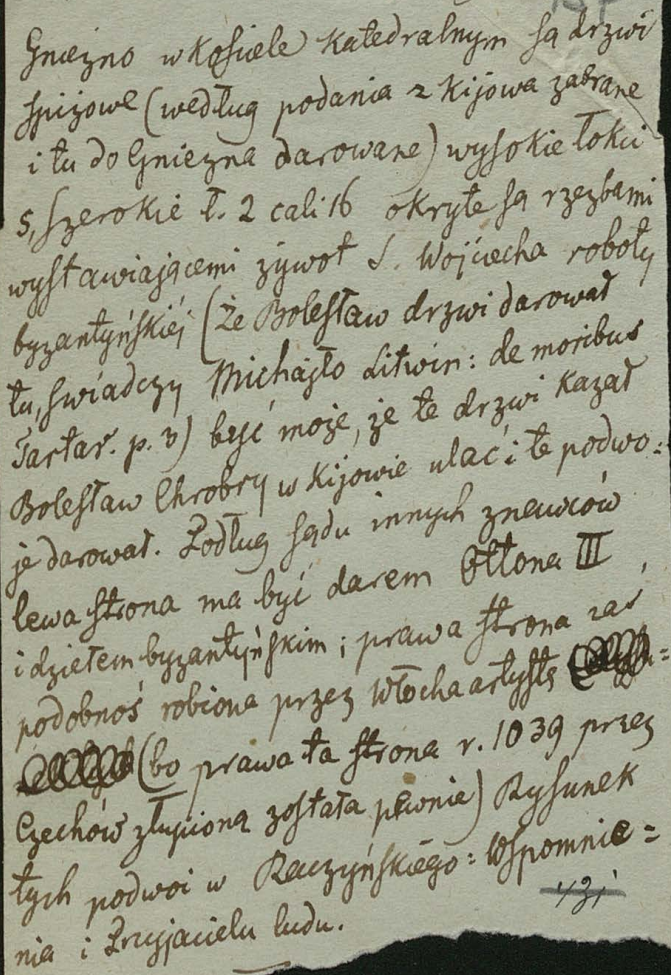 Gniezno w kościele katedralnym są drzwi
spiżowe (według podania z Kijowa zabrane
i tu do Gniezna darowane) wysokie łokci
5, szerokie ł. 2 cali 16 okryte są rzezbami
wystawiającemi żywot S. Wojciecha roboty
byzantyńskiéj (że Bolesław drzwi darował
tu, świadczy Michajło Litwin: de moribus
Tartar. p. 3) być może, że te drzwi kazał
Bolesław Chrobry w Kijowie ulać i te podwo=
je darował. Podług sądu innych znawców
lewa strona ma być darem Ottona III,
i dziełem byzantyńskim; prawa strona zaś
podobnoś robiona przez Włocha artystę
(bo prawa ta strona r. 1039 przez
Czechów złupioną została pewnie) Rysunek
tych podwoi w Raczyńskiego: Wspomnie=
nia i Przyjacielu ludu.
431